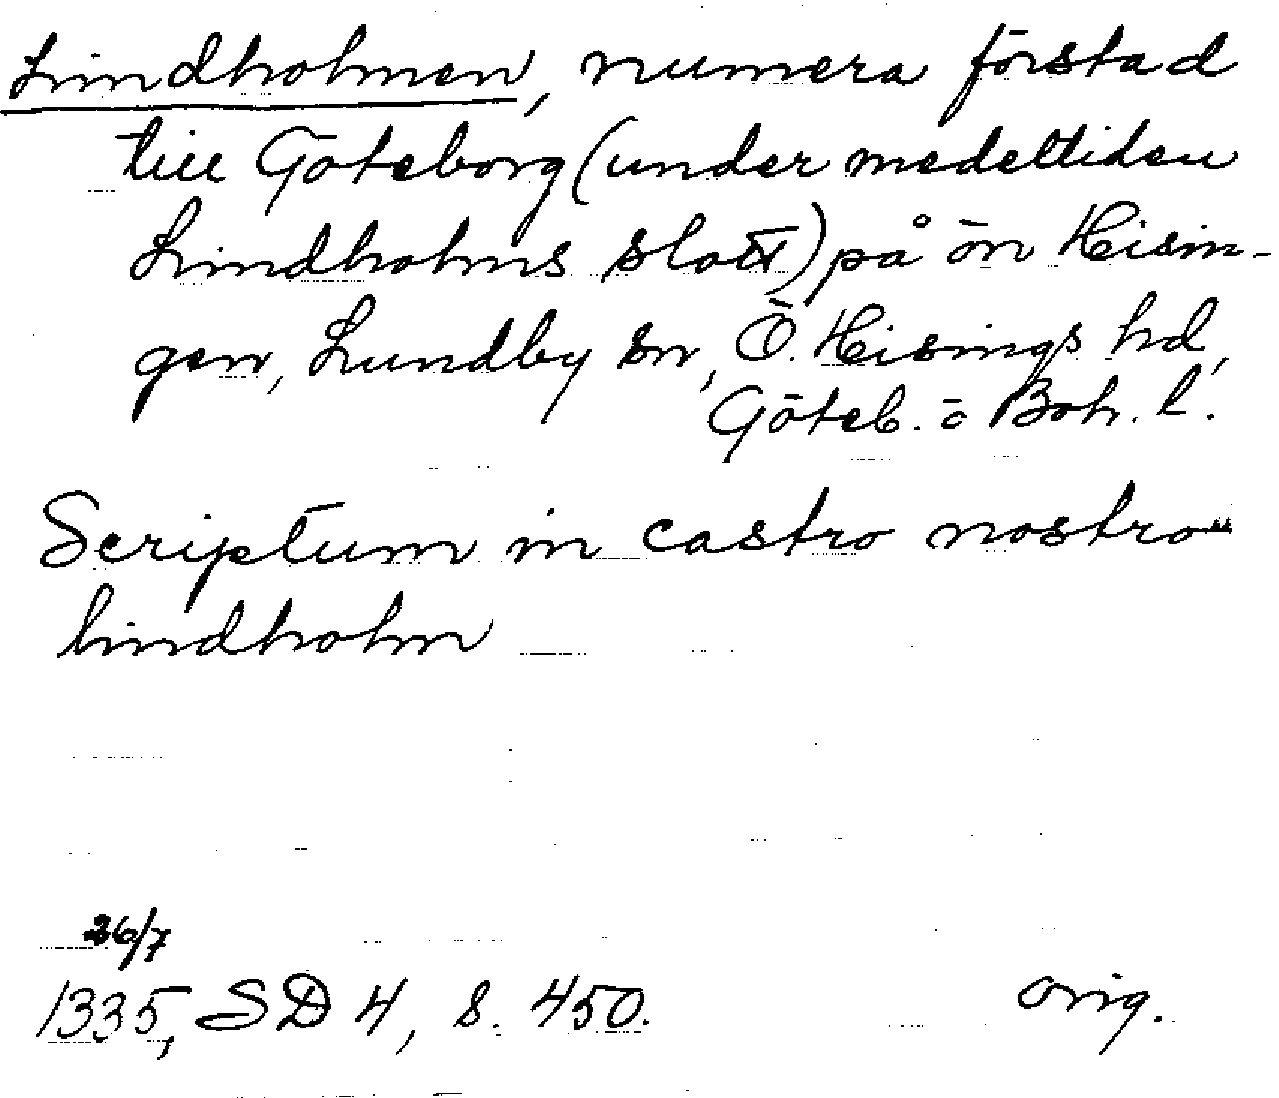 Lindholmen, numera förstad
till Göteborg (under medeltiden
Lindholms slott) på ön Hisin-
gen, Lundby sn, Ö. Hisings hd,
Göteb. o Boh. l.
Scriptum in castro nostro"
lindholm
26/7
1335, SD 4, s. 450. orig.